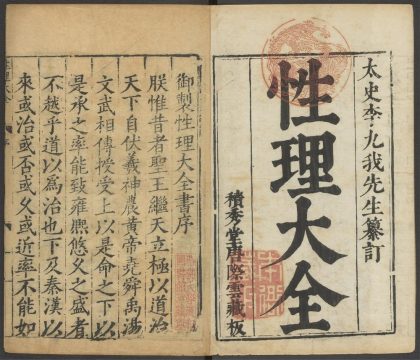 太史李九我先生纂訂
性理大全
積秀堂唐際雲藏板
御製性理大全書序
朕惟昔者聖王繼天立極以道治
天下自伏羲神農黃帝堯舜禹湯
文武相傳授受上以是命之下以
是承之率能致雍熙悠久之盛者
不越乎道以爲治也下及秦漢以
來或治或否或久或近率不能如